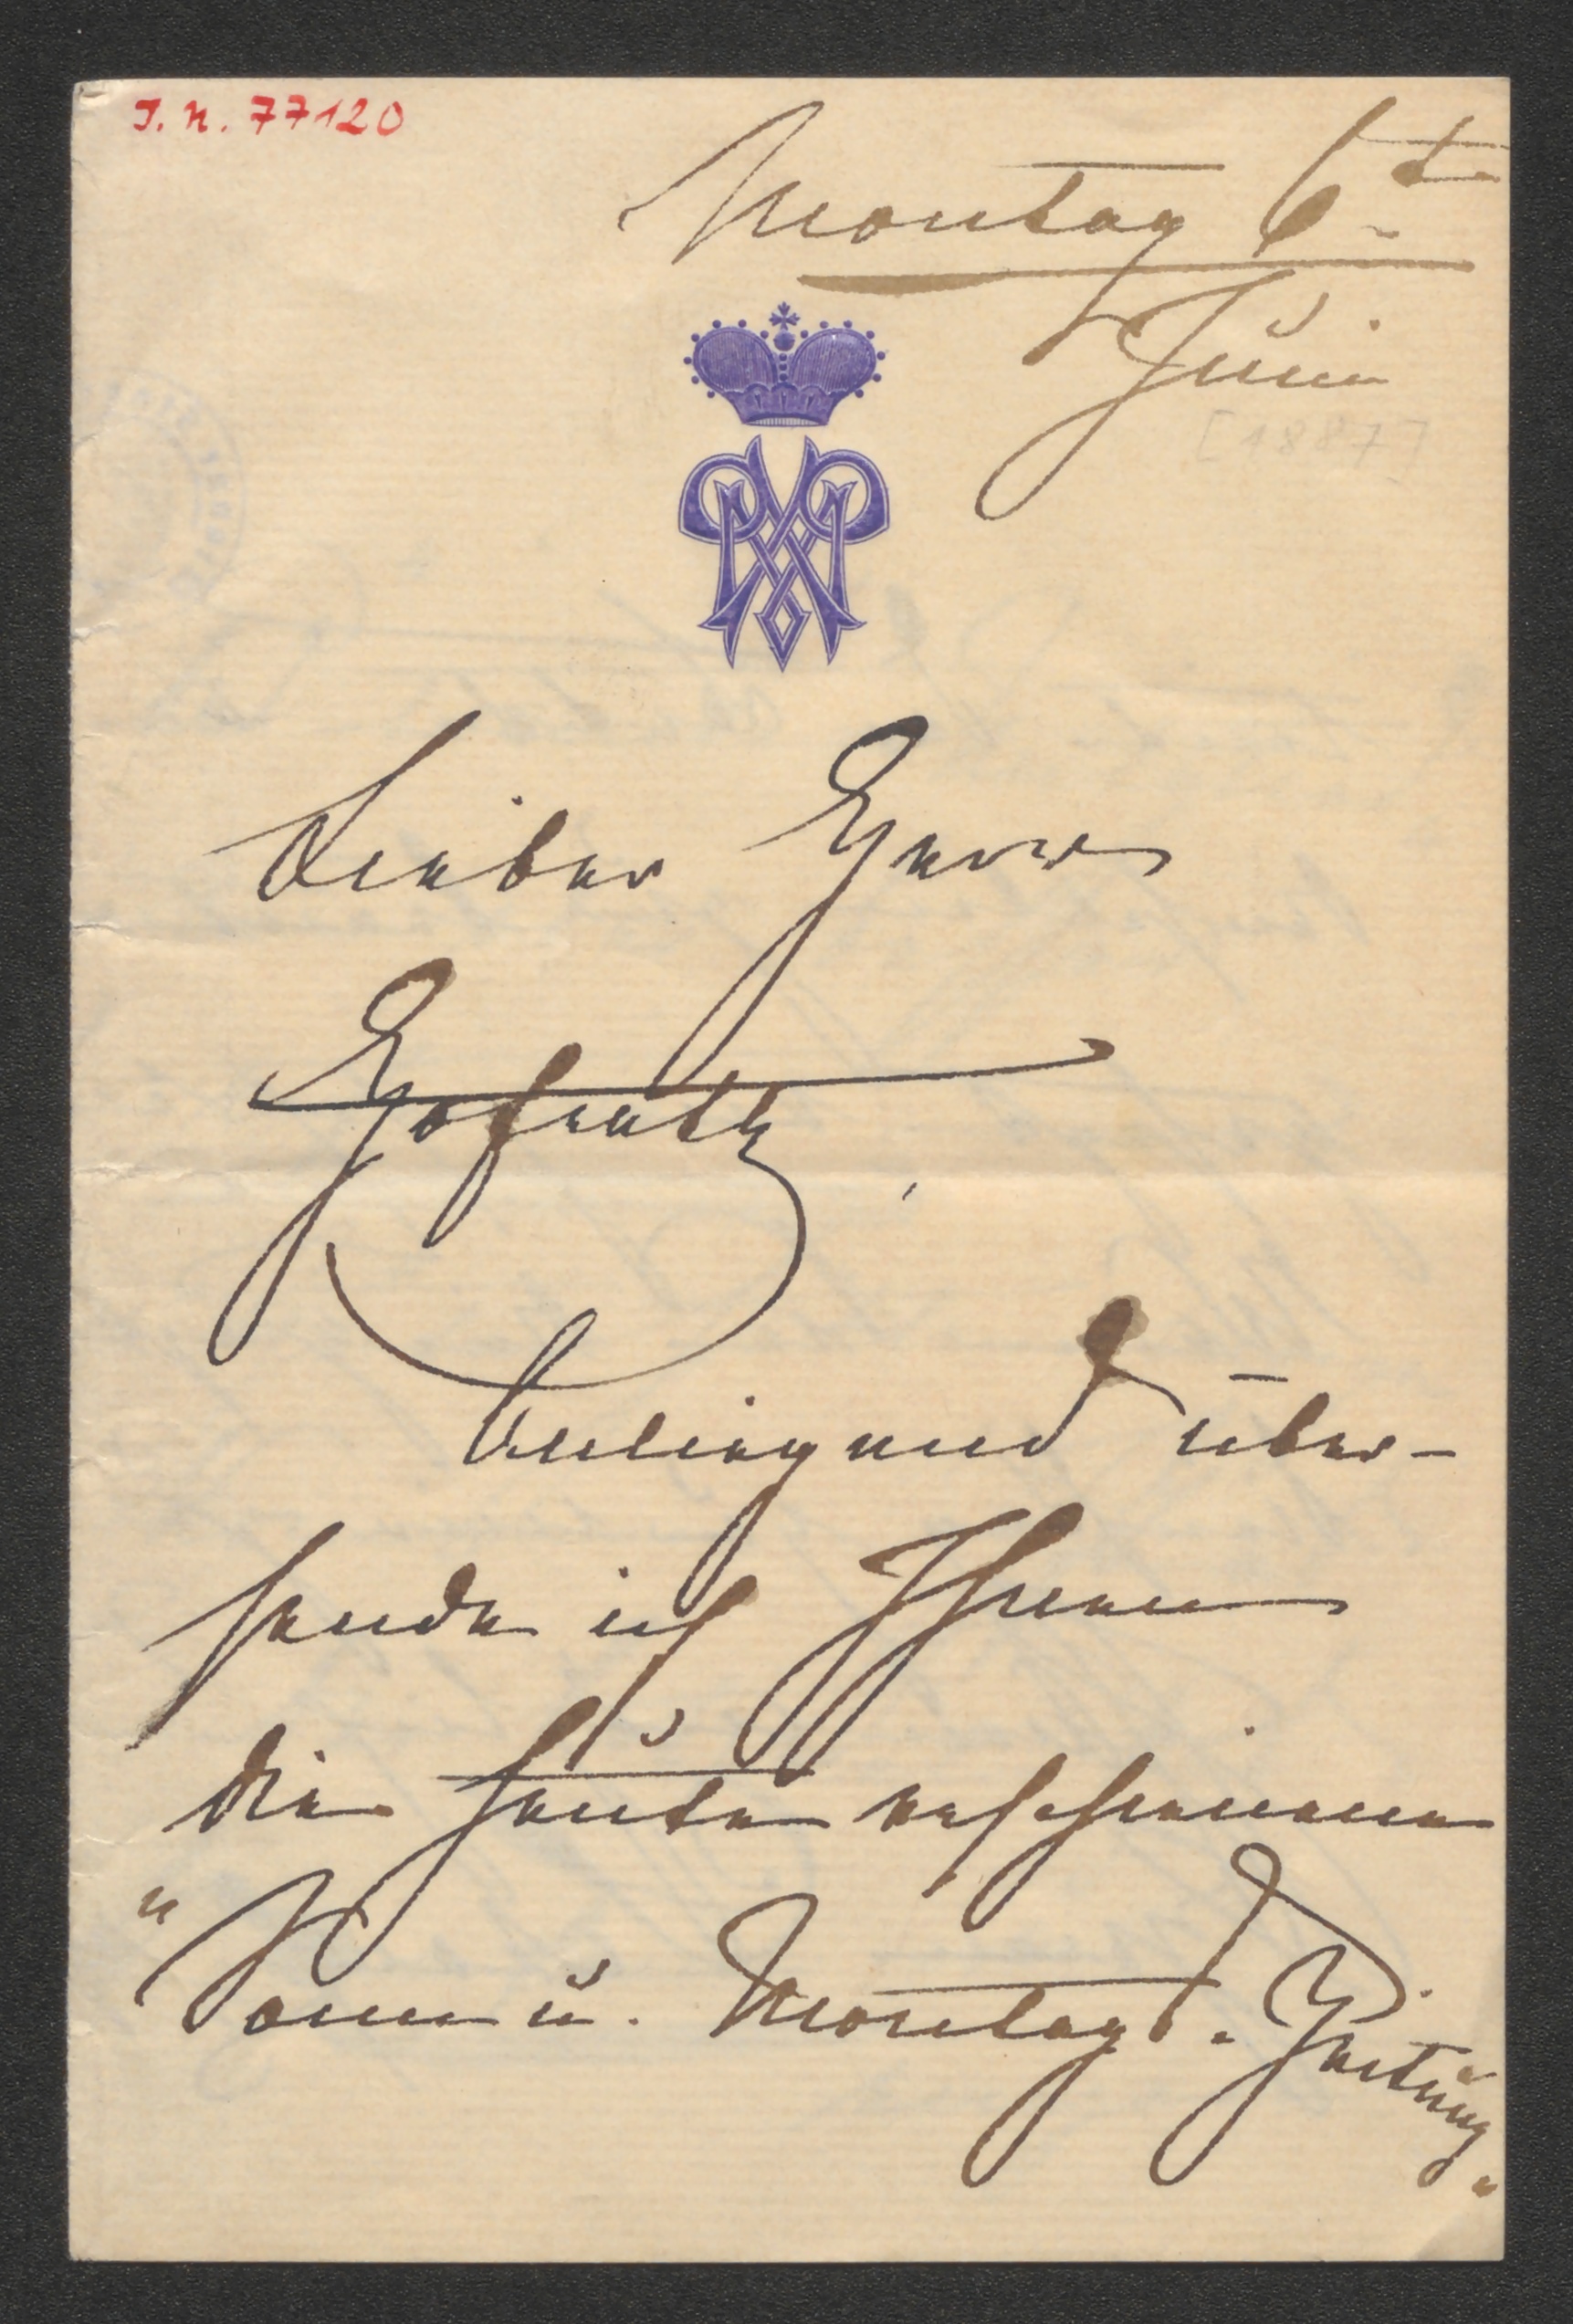 J. N. 77120
Montag 6t
Juni
[1887]
Lieber Herr
Hofrath,
Anliegend über-
sende ich Ihnen
die heute erschienene
"Sonn u. Montags-Zeitung"